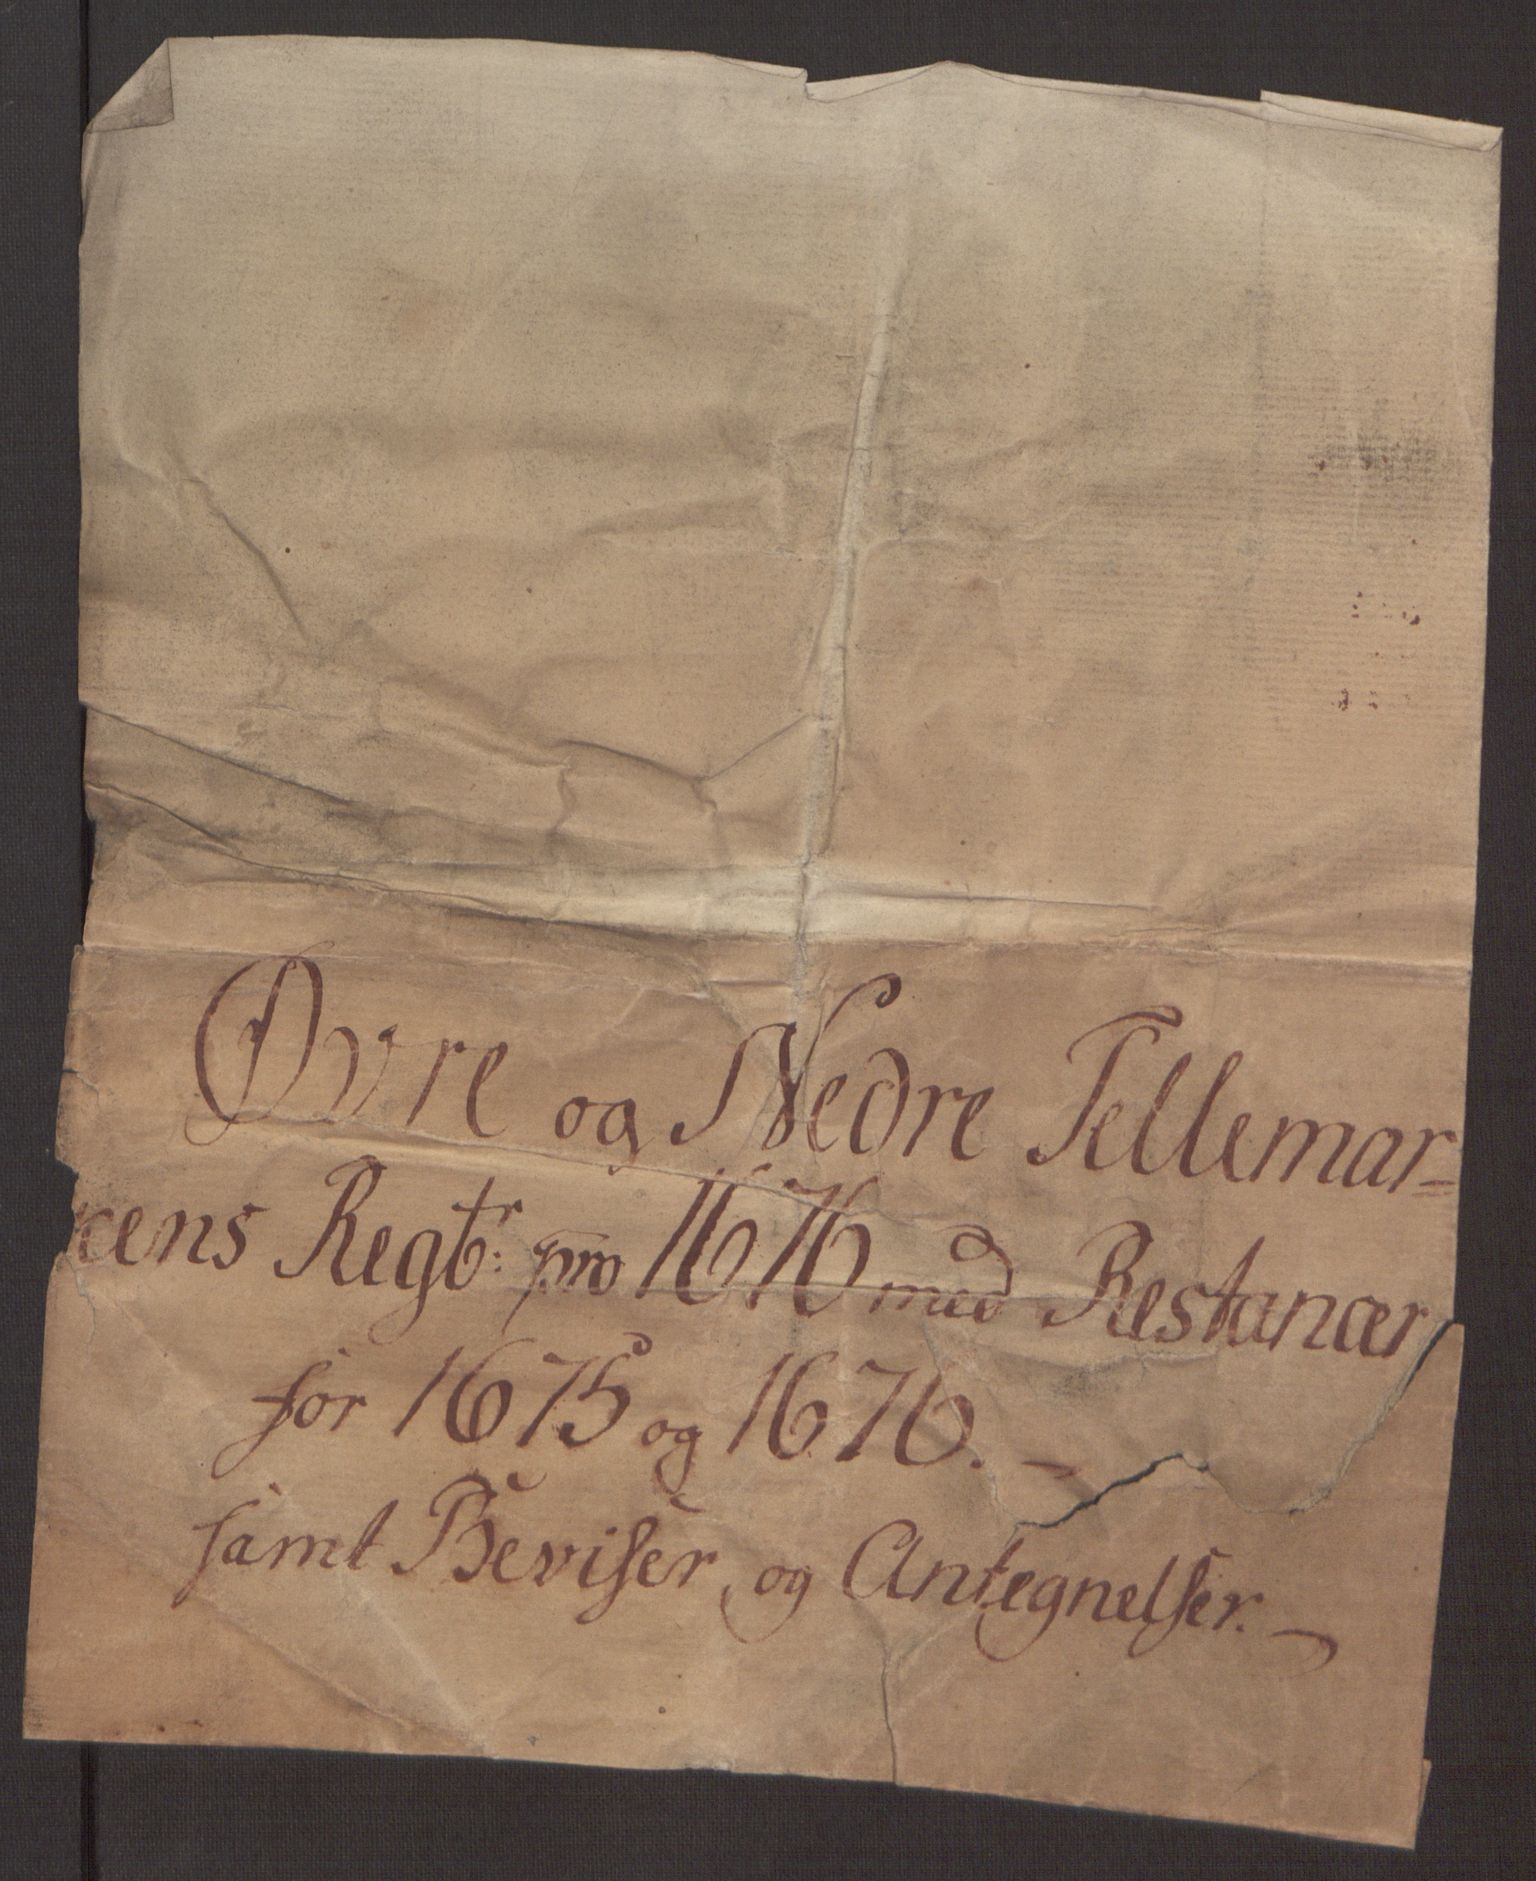 Øvre og Nedre Tellemar=
kens Regbr: pro 1676 med Restancer
for 1675 og 1676. —
samt Beviser og Antegnelser. —